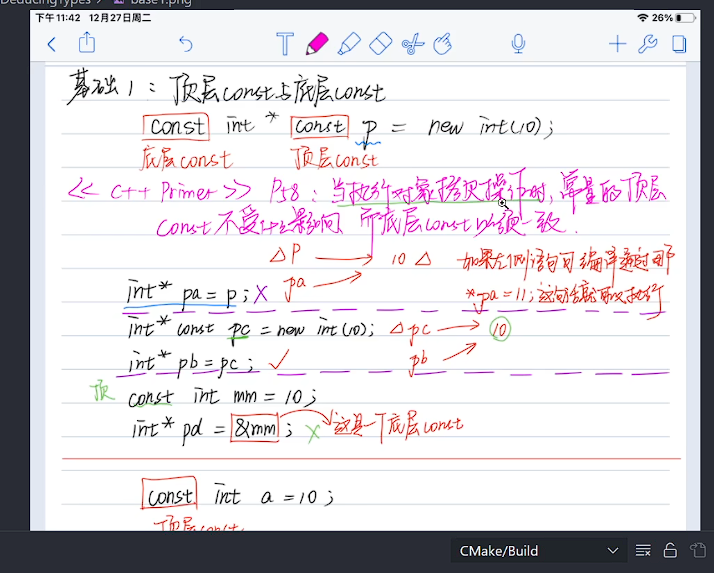 DeducingTypes > base1.png
下午11:42 12月27日周二
26%
基础1：顶层const与底层const
const int * const p = new int(10);
底层const 顶层const
<< C++ Primer >> P58：当执行对象拷贝操作时，常量的顶层
const不受什么影响，而底层const必须一致．
△P 10 △ 如果左侧语句可编译通过那
int* pa = p; X pa *pa = 11;这句话就可以执行
int* const pc = new int(10); △pc 10
int* pb = pc; ✓ pb
顶 const int mm = 10;
int* pd = &mm; X 这是一个底层const
const int a = 10;
顶层const
CMake/Build